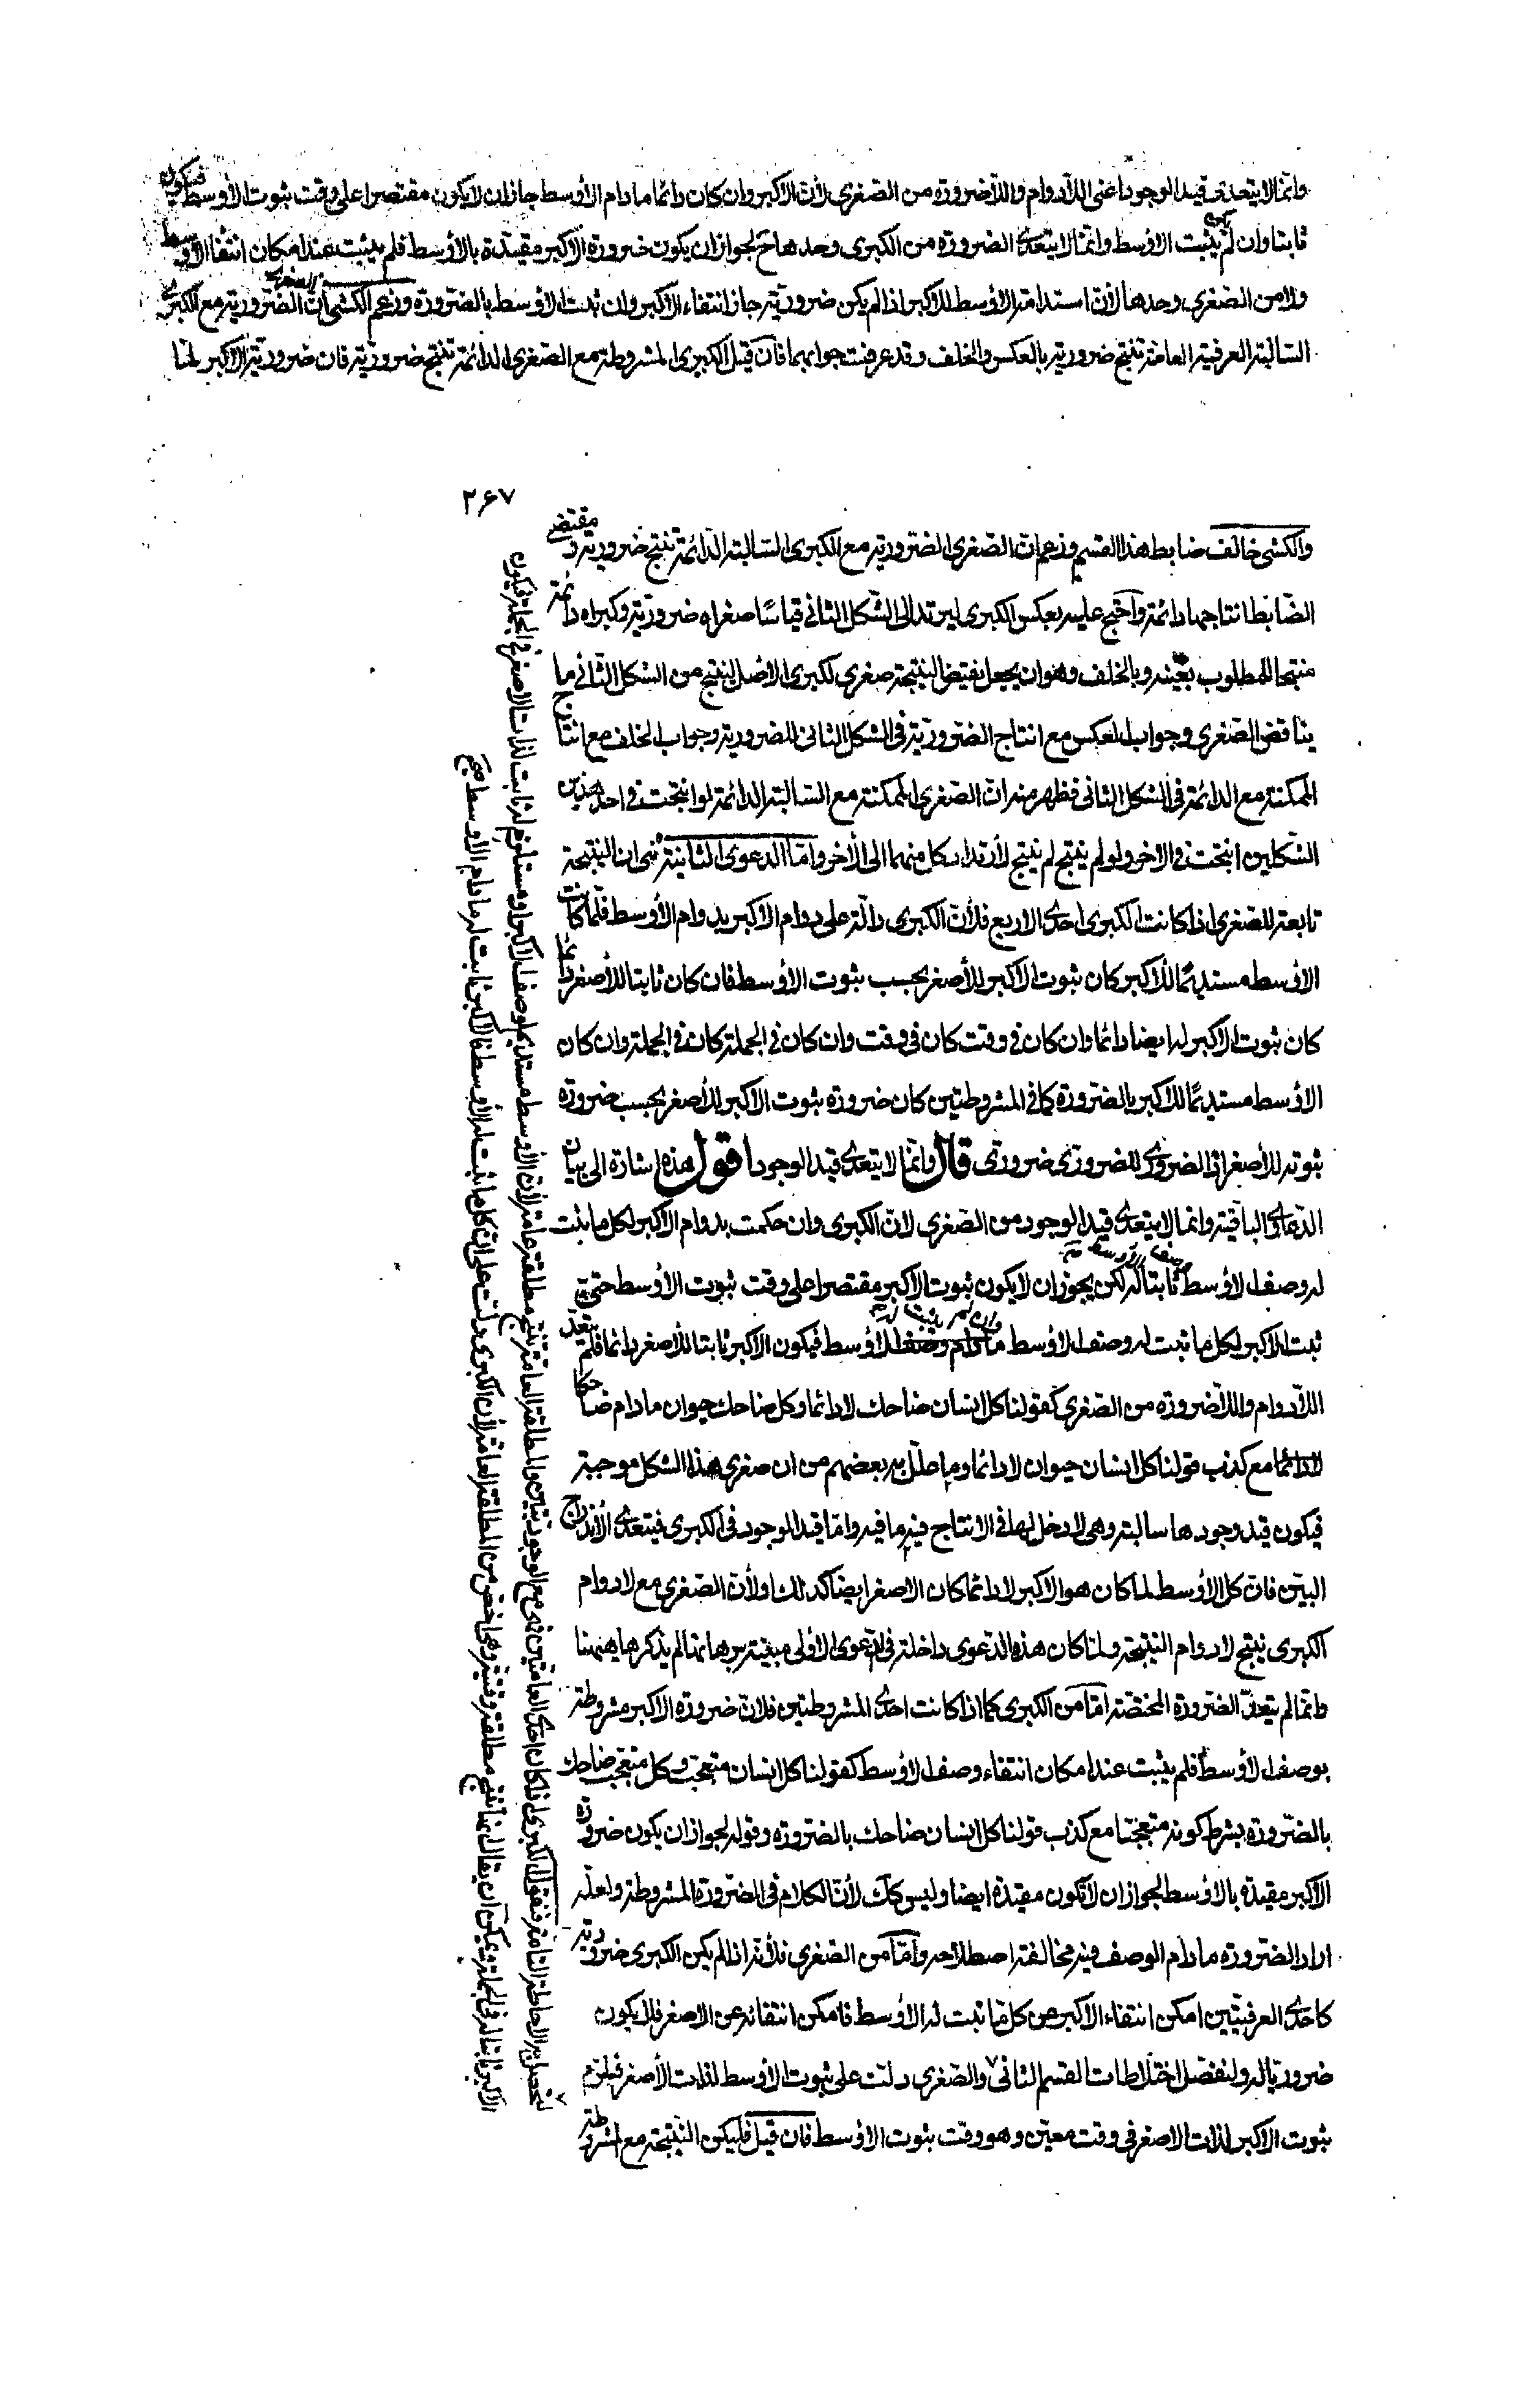 وانما لا يتعدى قيد الوجود اعنى اللادوام واللاضرورة من الصغرى لأن الاكبر وان كان دائما مادام الأوسط جاز ان لا يكون مقتصرا على وقت ثبوت الأوسط فيكون
ثابتا وان لم يكن يثبت الاوسط وانما لا يتعدى الضرورة من الكبرى وحدها ح لجواز ان يكون ضرورة الاكبر مقيدة بالأوسط فلم يثبت عند امكان انتفاء الأوسط
ولا من الصغرى وحدها لأن استدامة الأوسط للاكبر اذا لم يكن ضرورية جاز انتفاء الاكبر وان ثبت الأوسط بالضرورة وزعم الكشى ان الصغرى الضرورية مع الكبرى
السالبة العرفية العامة تنتج ضرورية بالعكس والخلف وقد عرفت جوابهما فان قيل الكبرى المشروطة مع الصغرى الدائمة تنتج ضرورية فان ضرورية الاكبر لما
٢۶٧
والكشى خالف ضابط هذا القسم وزعم ان الصغرى الضرورية مع الكبرى السالبة الدائمة تنتج ضرورية ومقتضى
الضابط انتاجها دائمة واحتج عليه بعكس الكبرى ليرتد الى الشكل الثانى قياسا صغراه ضرورية وكبراه دائمة
منتجا للمطلوب بعينه وبالخلف وهو ان يجعل نقيض النتيجة صغرى لكبرى الاصل لينتج من الشكل الثانى ما
يناقض الصغرى وجواب العكس مع انتاج الضرورية فى الشكل الثانى للضرورية وجواب الخلف مع انتاج
الممكنة مع الدائمة فى الشكل الثانى فظهر منه ان الصغرى الممكنة مع السالبة الدائمة لو انتجت فى احد هذين
الشكلين انتجت فى الاخر ولو لم ينتج لم ينتج لأرتداد كل منهما الى الأخر واما الدعوى الثانية فهى ان النتيجة
تابعة للصغرى اذا كانت الكبرى احدى الاربع فلأن الكبرى دالة على دوام الاكبر بدوام الأوسط فلما كان
الاوسط مستديما للأكبر كان ثبوت الاكبر للأصغر بحسب ثبوت الاوسط فان كان ثابتا للأصغر دائما
كان ثبوت الاكبر له ايضا دائما وان كان فى وقت كان فى وقت وان كان فى الجملة كان فى الجملة وان كان
الأوسط مستديما للاكبر بالضرورة كما فى المشروطتين كان ضرورة ثبوت الاكبر للأصغر بحسب ضرورة
ثبوته للأصغر اذ الضرورى للضرورى ضرورى قال وانما لا يتعدى قيد الوجود اقول هذه اشارة الى بيان
الدعاوى الباقية وانما لا يتعدى قيد الوجود من الصغرى لان الكبرى وان حكمت بدوام الاكبر لكل ما يثبت
له وصف الاوسط ثابتا له لكن يجوز ان لا يكون ثبوت الاكبر مقتصرا على وقت ثبوت الأوسط حتى
ثبت الاكبر لكل ما ثبت له وصف الاوسط وان لم يثبت له فيكون الاكبر ثابتا للأصغر دائما فلم يتعد
اللادوام واللاضرورة من الصغرى كقولنا كل انسان ضاحك لا دائما وكل ضاحك حيوان مادام ضاحكا
لا دائما مع كذب قولنا كل انسان حيوان لا دائما وما علل به بعضهم من ان صغرى هذا الشكل موجبة
فيكون قيد وجودها سالبة وهى لا دخل لها فى الانتاج فيه ما فيه واما قيد الوجود فى الكبرى فيتعدى الأندراج
البين فان كل الأوسط لما كان هو الاكبر لا دائما كان الاصغر ايضا كذلك ولأن الصغرى مع لا دوام
الكبرى ينتج لا دوام النتيجة ولما كان هذه الدعوى داخلة فى الدعوى الاولى مبينة ببرهانها لم يذكرها ههنا
وانما لم يتعد الضرورة المختصة اما من الكبرى كما اذا كانت احدى المشروطتين فلان ضرورة الاكبر مشروطة
بوصف الأوسط فلم يثبت عند امكان انتفاء وصف الأوسط كقولنا كل انسان متعجب وكل متعجب ضاحك
بالضرورة بشرط كونه متعجبا مع كذب قولنا كل انسان ضاحك بالضرورة وقوله لجواز ان يكون ضرورة
الاكبر مقيدة بالاوسط لجواز ان لا تكون مقيدة ايضا وليس كك لأن الكلام فى الضرورة المشروطة ولعله
اراد الضرورة مادام الوصف فيه مخالفة اصطلاحه واما من الصغرى فلأنه اذا لم يكن الكبرى ضرورية
كاحدى العرفيتين امكن انتفاء الاكبر عن كل ما ثبت له الأوسط فامكن انتفائه عن الاصغر فلا يكون
ضروريا له ولنفصل اختلاطات القسم الثانى والصغرى دلت على ثبوت الاوسط لذات الأصغر فيلزم
ثبوت الاكبر لذات الاصغر فى وقت معين وهو وقت ثبوت الاوسط فان قيل فليكن النتيجة مع المشروطة
لتحصل به الاحاطة التامة فنقول الكبرى اذا كان احدى العامتين فهى مع الوجوديتين والمطلقة العامة تنتج مطلقة عامة لأن الأوسط مستديم لوصف الاكبر او مستلزم له ثابت لذات الاصغر فى الجملة فيكون
الاكبر ثابتا له فى الجملة ويمكن ان يقال انما تنتج مطلقة وقتية وهى اخص من المطلقة العامة لأن الكبرى دلت على ان كل ما ثبت له الأوسط فالاكبر ثابت له مادام الأوسط